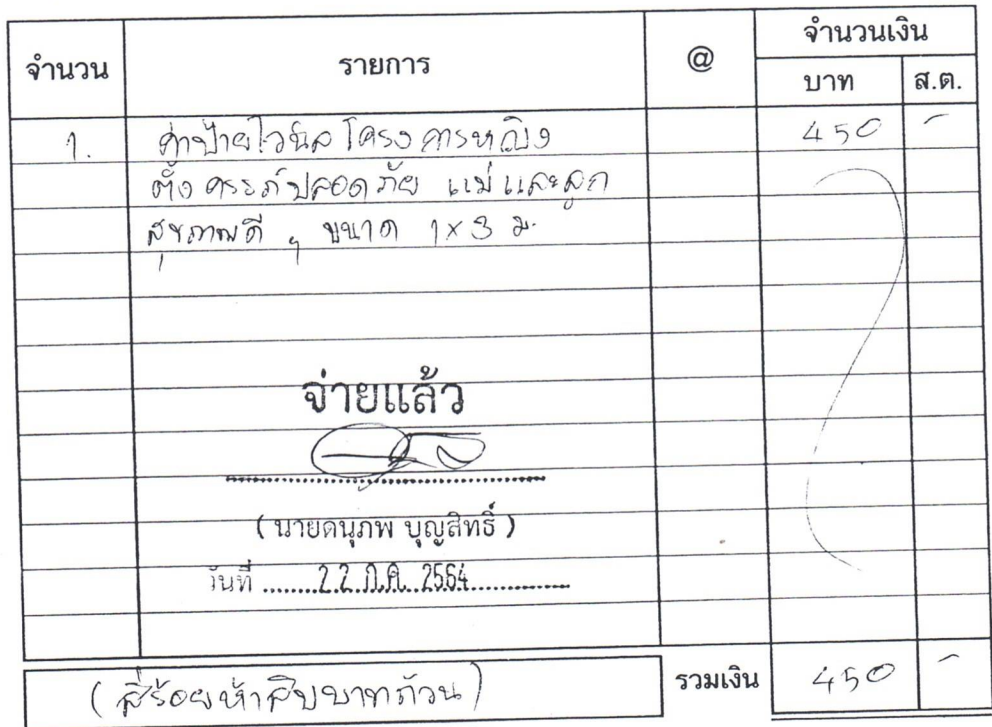 จำนวน รายการ @ จำนวนเงิน
บาท ส.ต.
1. ค่าป้ายไวนิล โครงการหญิง 450 -
ตั้งครรภ์ปลอดภัย แม่และลูก
สุขภาพดี ขนาด 1x3 ม.
จ่ายแล้ว
( นายดนุภพ บุญสิทธิ์ )
วันที่ 22 ก.ค. 2564
(สี่ร้อยห้าสิบบาทถ้วน) รวมเงิน 450 -